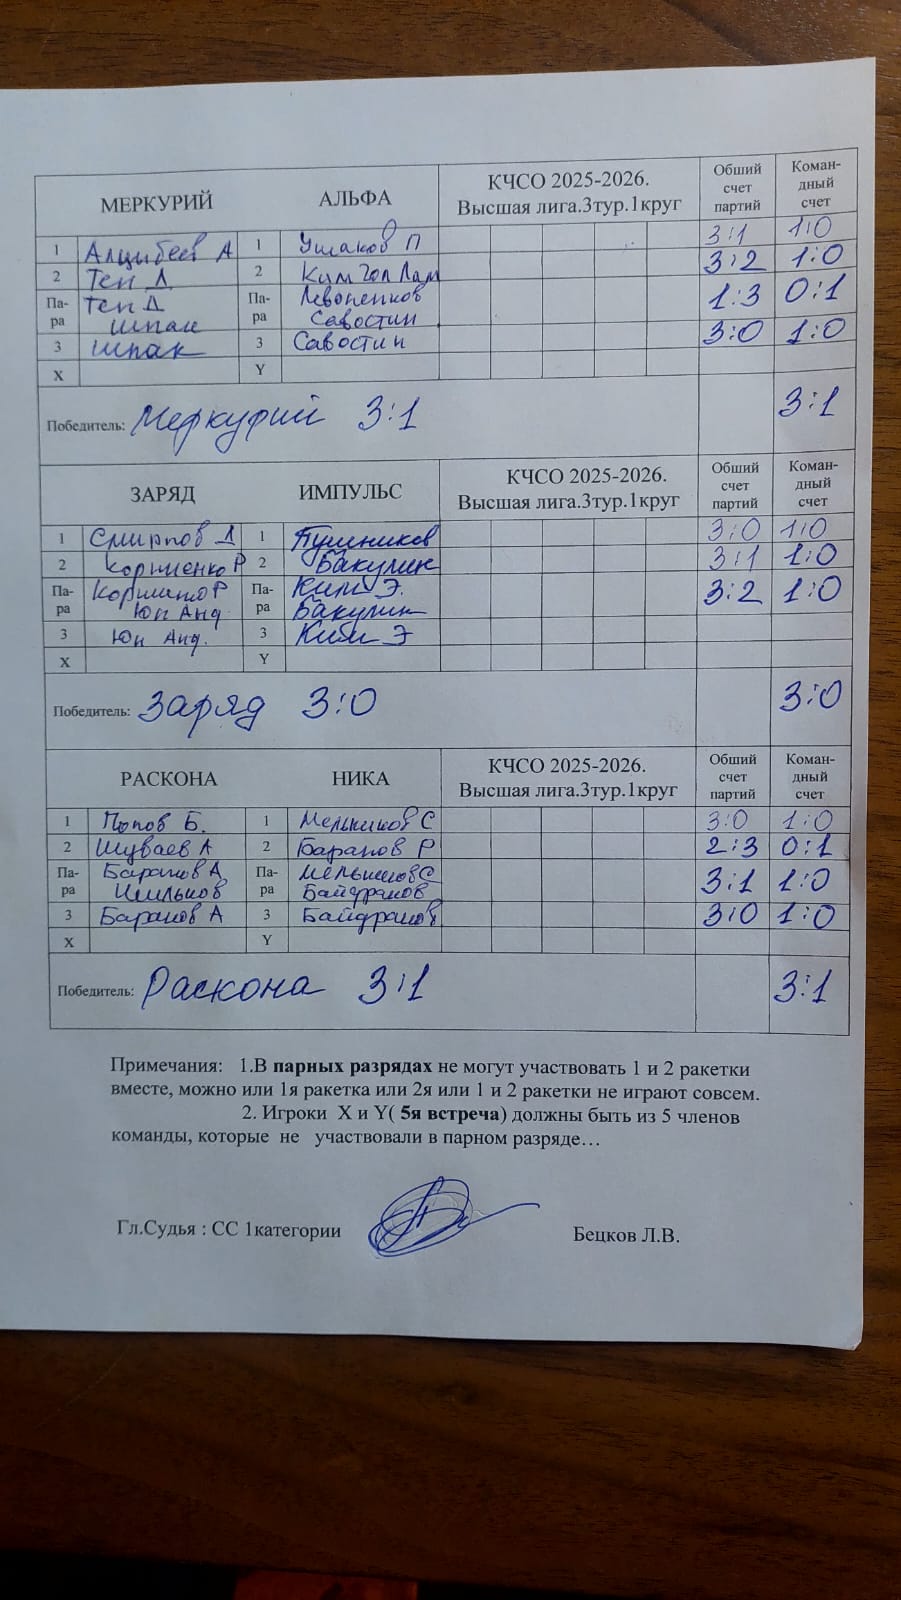 МЕРКУРИЙ АЛЬФА КЧСО 2025-2026. Высшая лига.3тур.1круг Общий счет партий Коман-дный счет
1 Алцибеев А 1 Ушаков П 3:1 1:0
2 Тен Д 2 Ким Чол Лам 3:2 1:0
Па-ра Тен Д Шпак Па-ра Левопенков Савостин 1:3 0:1
3 Шпак 3 Савостин 3:0 1:0
X Y
Победитель: Меркурий 3:1 3:1
ЗАРЯД ИМПУЛЬС КЧСО 2025-2026. Высшая лига.3тур.1круг Общий счет партий Коман-дный счет
1 Смирнов Д 1 Пушников 3:0 1:0
2 Корниенко Р 2 Бакулин 3:1 1:0
Па-ра Юн Анд Па-ра Ким Э. Бакулин 3:2 1:0
3 Юн Анд. 3 Ким Э
X Y
Победитель: Заряд 3:0 3:0
РАСКОНА НИКА КЧСО 2025-2026. Высшая лига.3тур.1круг Общий счет партий Коман-дный счет
1 Попов Б. 1 Мельников С 3:0 1:0
2 Шуваев А 2 Баранов Р 2:3 0:1
Па-ра Баранов А Па-ра Мельников С Байдраков 3:1 1:0
3 Баранов А 3 Байдраков 3:0 1:0
X Y
Победитель: Раскона 3:1 3:1
Примечания: 1.В парных разрядах не могут участвовать 1 и 2 ракетки
вместе, можно или 1я ракетка или 2я или 1 и 2 ракетки не играют совсем.
2. Игроки X и Y( 5я встреча) должны быть из 5 членов
команды, которые не участвовали в парном разряде…
Гл.Судья : СС 1категории Бецков Л.В.